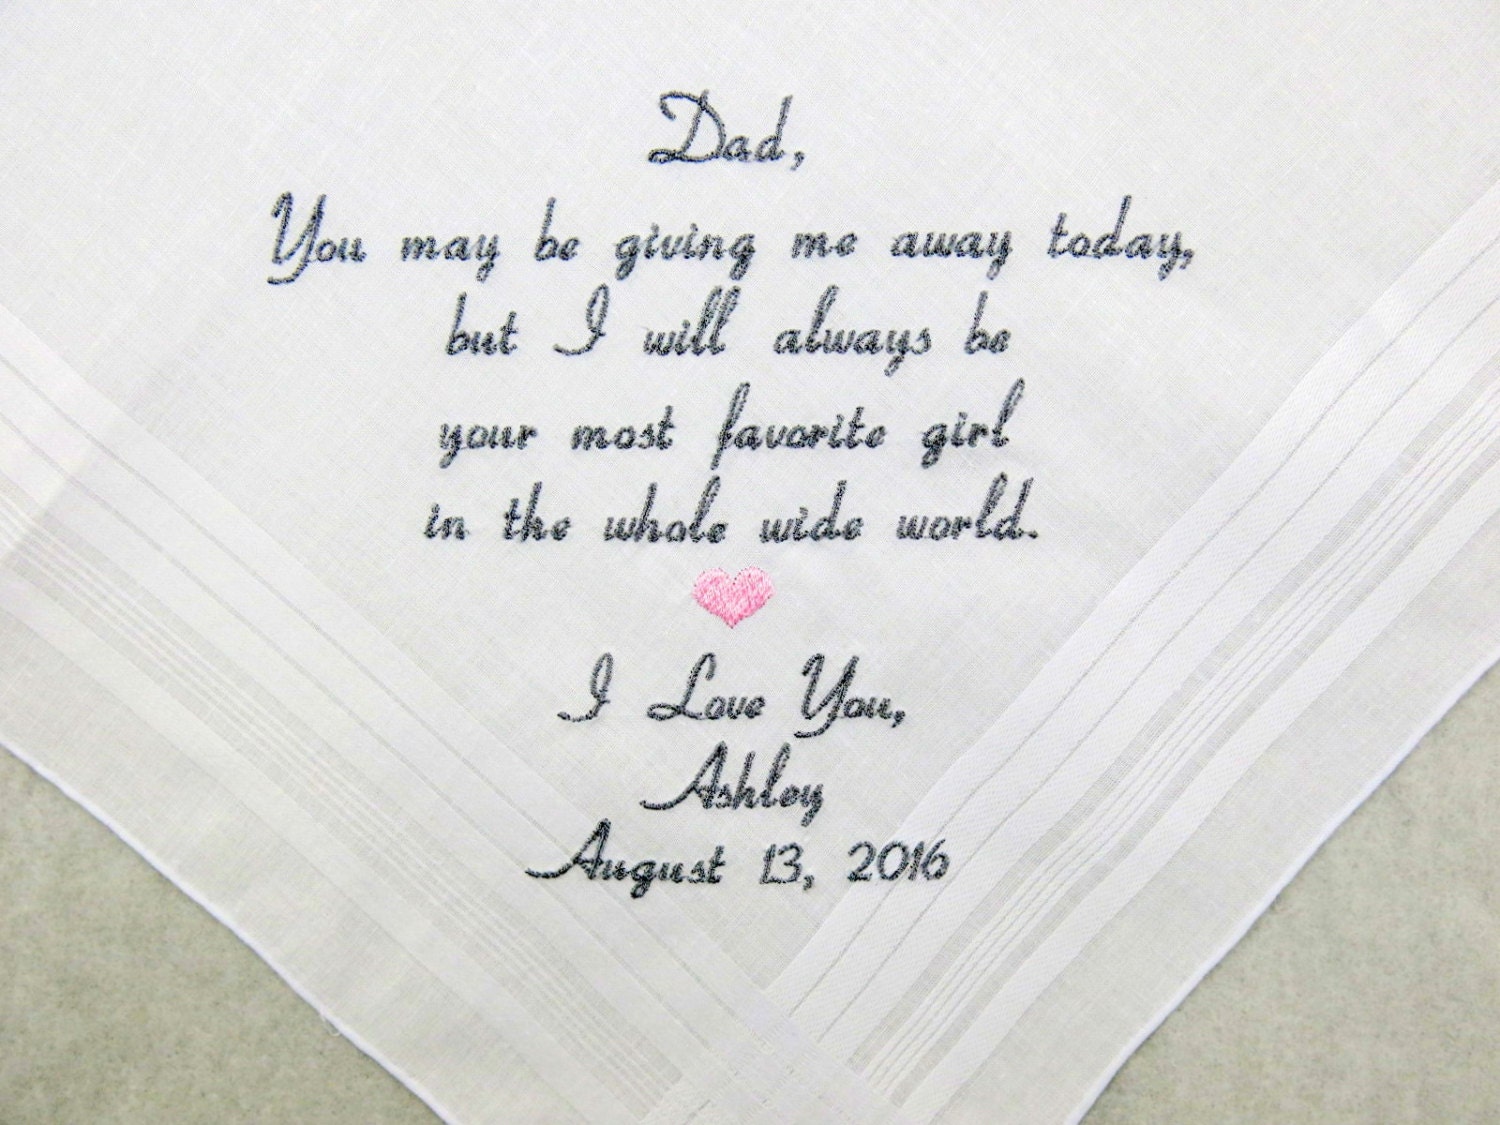 Dad,
You may be giving me away today,
but I will always be
your most favorite girl
in the whole wide world.
I Love You,
Ashley
August 13, 2016